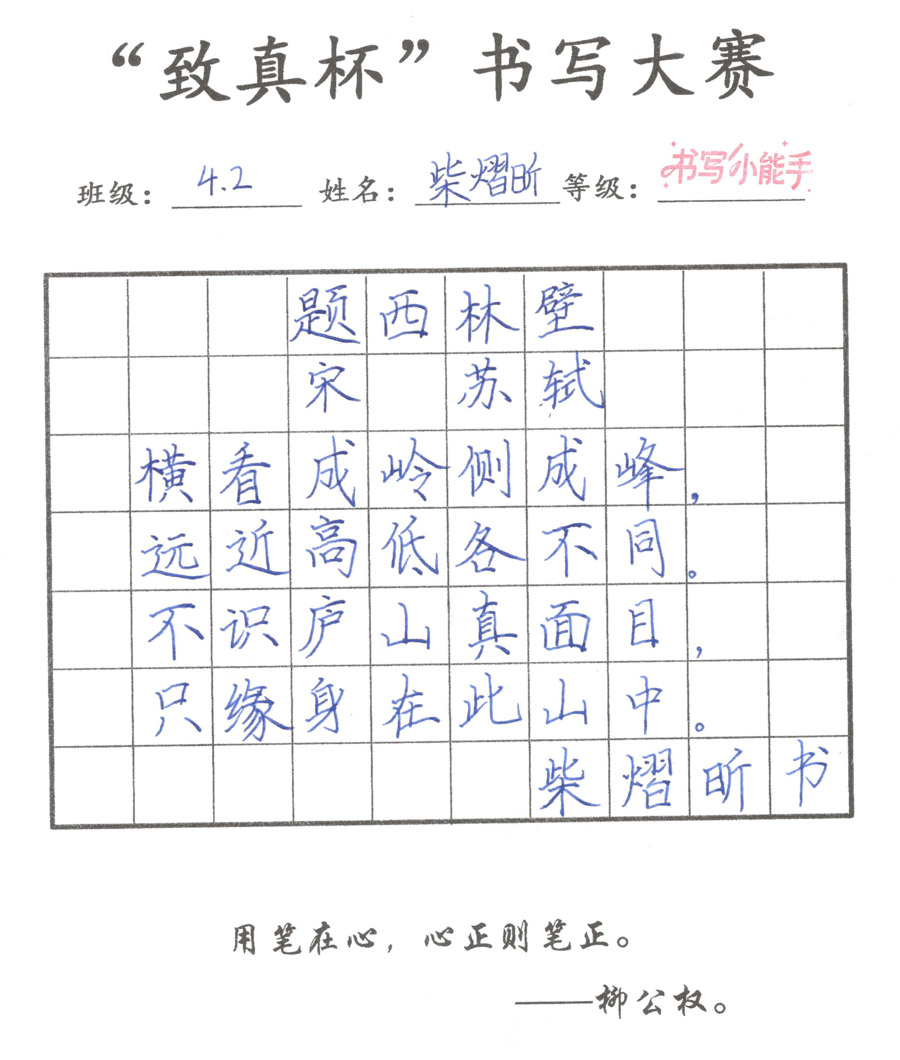 “致真杯”书写大赛
班级：4.2 姓名：柴熠昕 等级：书写小能手
题西林壁
宋 苏轼
横看成岭侧成峰，
远近高低各不同。
不识庐山真面目，
只缘身在此山中。
柴熠昕书
用笔在心，心正则笔正。
——柳公权。